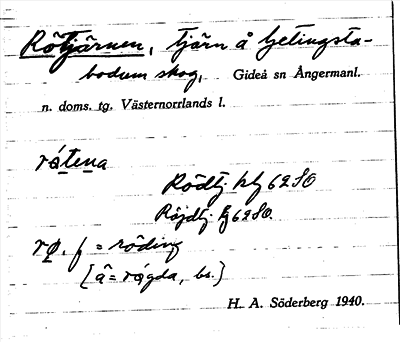 Rötjärnen, tjärn å Getingsta-
bodum skog, Gideå sn Ångermanl.
n. doms. tg. Västernorrlands l.
rótena
Rödtj. hlj 6280
Röjdtj. Ej 6280.
rø. f = röding
[å = rógda, bs.]
H. A. Söderberg 1940.